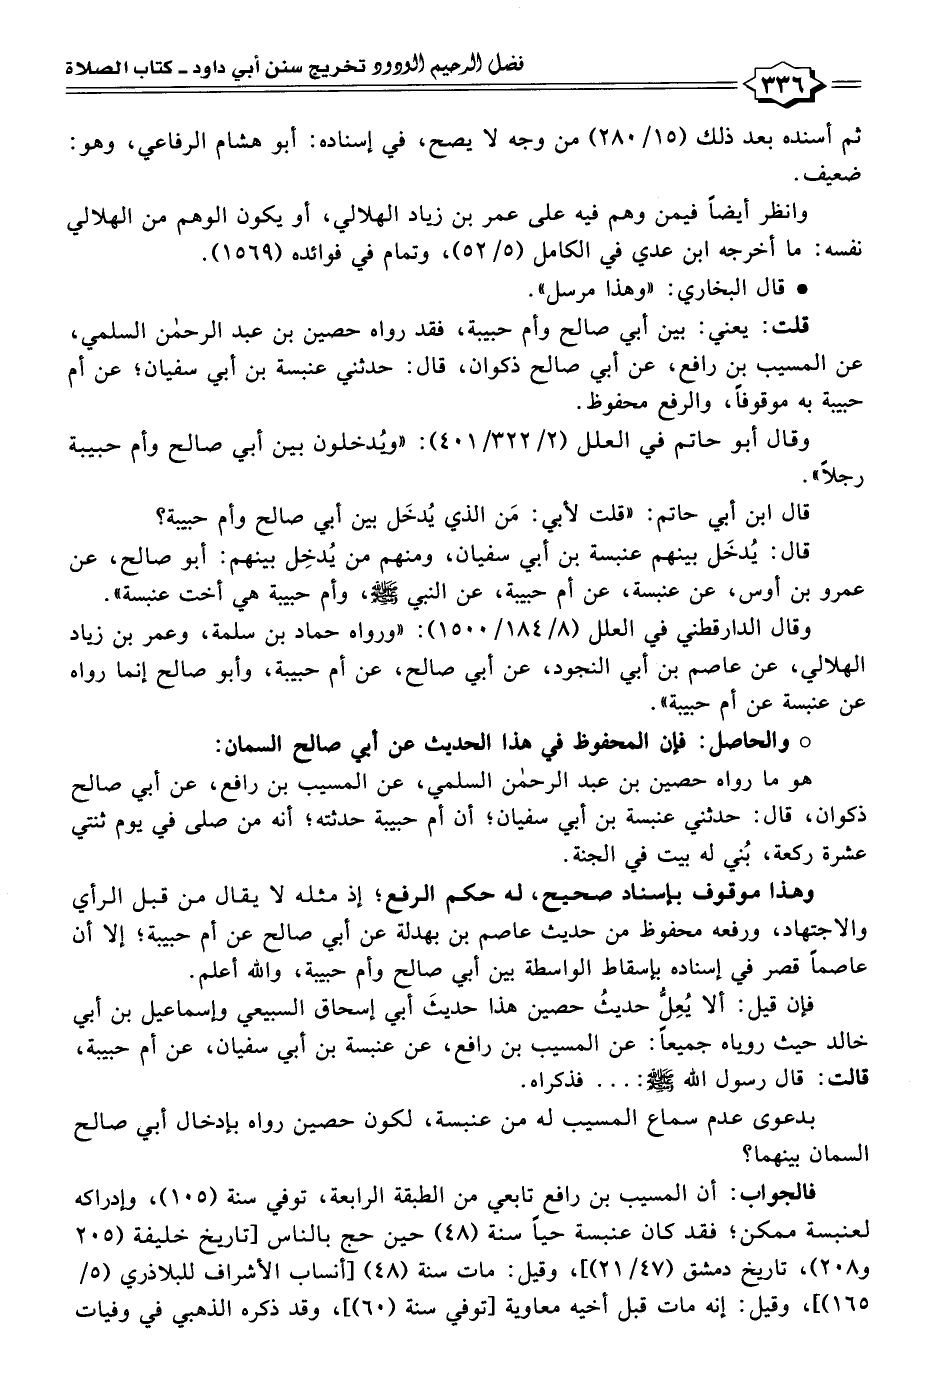 فضل الرحيم الودود تخريج سنن أبي داود - كتاب الصلاة
٣٣٦
ثم أسنده بعد ذلك (١٥/ ٢٨٠) من وجه لا يصح، في إسناده: أبو هشام الرفاعي، وهو:
ضعيف.
وانظر أيضاً فيمن وهم فيه على عمر بن زياد الهلالي، أو يكون الوهم من الهلالي
نفسه: ما أخرجه ابن عدي في الكامل (٥/ ٥٢)، وتمام في فوائده (١٥٦٩).
• قال البخاري: «وهذا مرسل».
قلت: يعني: بين أبي صالح وأم حبيبة، فقد رواه حصين بن عبد الرحمٰن السلمي،
عن المسيب بن رافع، عن أبي صالح ذكوان، قال: حدثني عنبسة بن أبي سفيان؛ عن أم
حبيبة به موقوفاً، والرفع محفوظ.
وقال أبو حاتم في العلل (٢/ ٣٢٢/ ٤٠١): «ويُدخلون بين أبي صالح وأم حبيبة
رجلاً».
قال ابن أبي حاتم: «قلت لأبي: مَن الذي يُدخَل بين أبي صالح وأم حبيبة؟
قال: يُدخَل بينهم عنبسة بن أبي سفيان، ومنهم من يُدخِل بينهم: أبو صالح، عن
عمرو بن أوس، عن عنبسة، عن أم حبيبة، عن النبي ﷺ، وأم حبيبة هي أخت عنبسة».
وقال الدارقطني في العلل (٨/ ١٨٤/ ١٥٠٠): «ورواه حماد بن سلمة، وعمر بن زياد
الهلالي، عن عاصم بن أبي النجود، عن أبي صالح، عن أم حبيبة، وأبو صالح إنما رواه
عن عنبسة عن أم حبيبة».
○ والحاصل: فإن المحفوظ في هذا الحديث عن أبي صالح السمان:
هو ما رواه حصين بن عبد الرحمٰن السلمي، عن المسيب بن رافع، عن أبي صالح
ذكوان، قال: حدثني عنبسة بن أبي سفيان؛ أن أم حبيبة حدثته؛ أنه من صلى في يوم ثنتي
عشرة ركعة، بُني له بيت في الجنة.
وهذا موقوف بإسناد صحيح، له حكم الرفع؛ إذ مثله لا يقال من قبل الرأي
والاجتهاد، ورفعه محفوظ من حديث عاصم بن بهدلة عن أبي صالح عن أم حبيبة؛ إلا أن
عاصماً قصر في إسناده بإسقاط الواسطة بين أبي صالح وأم حبيبة، والله أعلم.
فإن قيل: ألا يُعِلُّ حديثُ حصين هذا حديثَ أبي إسحاق السبيعي وإسماعيل بن أبي
خالد حيث روياه جميعاً: عن المسيب بن رافع، عن عنبسة بن أبي سفيان، عن أم حبيبة،
قالت: قال رسول الله ﷺ: ... فذكراه.
بدعوى عدم سماع المسيب له من عنبسة، لكون حصين رواه بإدخال أبي صالح
السمان بينهما؟
فالجواب: أن المسيب بن رافع تابعي من الطبقة الرابعة، توفي سنة (١٠٥)، وإدراكه
لعنبسة ممكن؛ فقد كان عنبسة حياً سنة (٤٨) حين حج بالناس [تاريخ خليفة (٢٠٥
و٢٠٨)، تاريخ دمشق (٤٧/ ٢١)]، وقيل: مات سنة (٤٨) [أنساب الأشراف للبلاذري (٥/
١٦٥)]، وقيل: إنه مات قبل أخيه معاوية [توفي سنة (٦٠)]، وقد ذكره الذهبي في وفيات